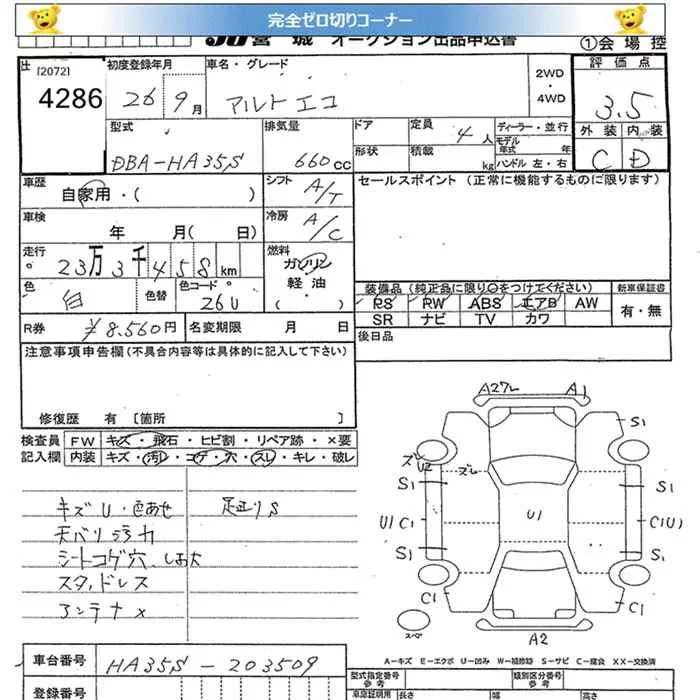 完全ゼロ切りコーナー
JU宮城 オークション出品申込書
①会場控
[2072]
4286
初度登録年月
26年9月
車名・グレード
アルト エコ
2WD
・
4WD
評価点
3.5
外装 内装
C D
型式
DBA-HA35S
排気量
660cc
ドア
形状
定員
4人
積載
kg
ディーラー・並行
モデル年式 年
ハンドル 左・右
車歴
自家用・( )
シフト
A/T
セールスポイント(正常に機能するものに限ります)
車検
年 月( 日)
冷房
A/C
走行
23万3千458km
燃料
ガソリン
軽油
( )
色
白
色替
色コード
26U
装備品(純正品に限り○をつけてください)
新車保証書
PS PW ABS エアB AW
SR ナビ TV カワ
有・無
R券
¥8.560円
名変期限 月 日
後日品
注意事項申告欄(不具合内容等は具体的に記入して下さい)
修復歴 有 [箇所 ]
検査員
記入欄
FW キズ・飛石・ヒビ割・リペア跡・×要
内装 キズ・汚レ・コゲ・穴・スレ・キレ・破レ
キズU・色あせ
足廻りS
天バリ
シートコゲ穴、
スタッドレス
アンテナ×
A27L A1
S1
ズレ
U2
ズレ
S1 S1
U1 C1 U1 C1(U)
S1 S1
C1 C1
スペア
A2
A-キズ E-エクボ U-凹み W-補修跡 S-サビ C-腐食 XX-交換済
車台番号
HA35S-203509
登録番号
型式指定番号
参考
類別区分番号
参考
車庫証明用 長さ 幅 高さ